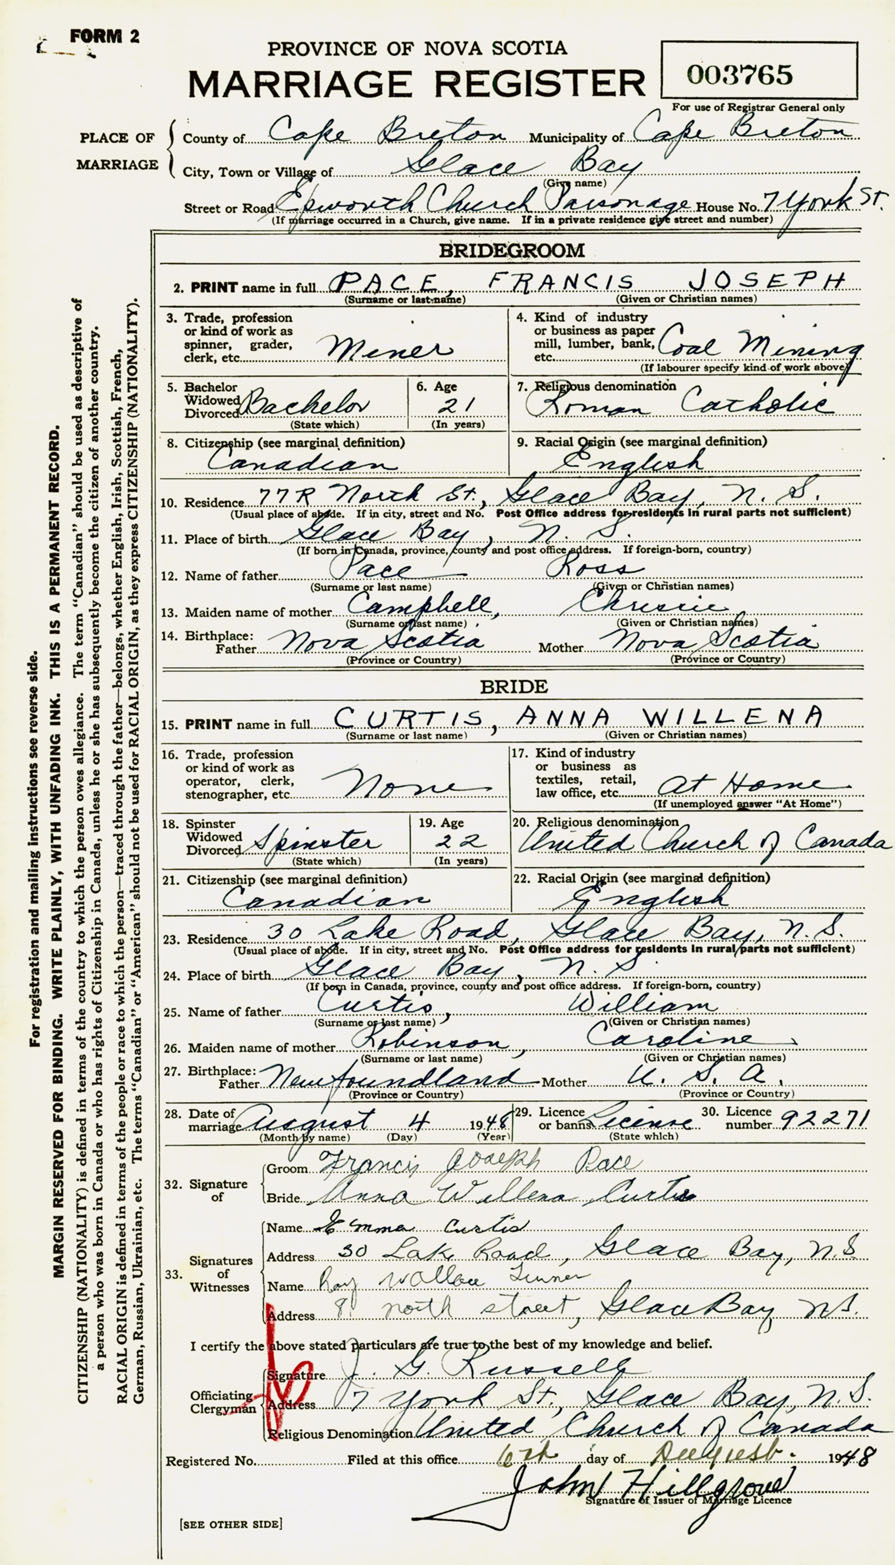 FORM 2
PROVINCE OF NOVA SCOTIA
MARRIAGE REGISTER
003765
For use of Registrar General only
PLACE OF MARRIAGE
County of Cape Breton Municipality of Cape Breton
City, Town or Village of Glace Bay
(Give name)
Street or Road Epworth Church Parsonage House No. 7 York St.
(If marriage occurred in a Church, give name. If in a private residence give street and number)
BRIDEGROOM
2. PRINT name in full PACE, FRANCIS JOSEPH
(Surname or last name) (Given or Christian names)
3. Trade, profession or kind of work as spinner, grader, clerk, etc. Miner
4. Kind of industry or business as paper mill, lumber, bank, etc. Coal Mining
(If labourer specify kind of work above)
5. Bachelor Widowed Divorced Bachelor
(State which)
6. Age 21
(In years)
7. Religious denomination Roman Catholic
8. Citizenship (see marginal definition) Canadian
9. Racial Origin (see marginal definition) English
10. Residence 77R North St., Glace Bay, N. S.
(Usual place of abode. If in city, street and No. Post Office address for residents in rural parts not sufficient)
11. Place of birth Glace Bay, N. S.
(If born in Canada, province, county and post office address. If foreign-born, country)
12. Name of father Pace Ross
(Surname or last name) (Given or Christian names)
13. Maiden name of mother Campbell, Chrissie
(Surname or last name) (Given or Christian names)
14. Birthplace: Father Nova Scotia Mother Nova Scotia
(Province or Country) (Province or Country)
BRIDE
15. PRINT name in full CURTIS, ANNA WILLENA
(Surname or last name) (Given or Christian names)
16. Trade, profession or kind of work as operator, clerk, stenographer, etc. None
17. Kind of industry or business as textiles, retail, law office, etc. At Home
(If unemployed answer "At Home")
18. Spinster Widowed Divorced Spinster
(State which)
19. Age 22
(In years)
20. Religious denomination United Church of Canada
21. Citizenship (see marginal definition) Canadian
22. Racial Origin (see marginal definition) English
23. Residence 30 Lake Road, Glace Bay, N. S.
(Usual place of abode. If in city, street and No. Post Office address for residents in rural parts not sufficient)
24. Place of birth Glace Bay, N. S.
(If born in Canada, province, county and post office address. If foreign-born, country)
25. Name of father Curtis, William
(Surname or last name) (Given or Christian names)
26. Maiden name of mother Robinson, Caroline
(Surname or last name) (Given or Christian names)
27. Birthplace: Father Newfoundland Mother U. S. A.
(Province or Country) (Province or Country)
28. Date of marriage August 4 1948
(Month by name) (Day) (Year)
29. Licence or banns License
(State which)
30. Licence number 92271
32. Signature of
Groom Francis Joseph Pace
Bride Anna Willena Curtis
33. Signatures of Witnesses
Name Emma Curtis
Address 30 Lake Road, Glace Bay, N.S
Name Roy Wallace Turner
Address 8 North Street, Glace Bay NS.
I certify the above stated particulars are true to the best of my knowledge and belief.
Officiating Clergyman
Signature J. G. Russell
Address 7 York St., Glace Bay, N. S.
Religious Denomination United Church of Canada
Registered No. Filed at this office 6th day of August 1948
John Hillgrove
Signature of Issuer of Marriage Licence
[SEE OTHER SIDE]
For registration and mailing instructions see reverse side.
MARGIN RESERVED FOR BINDING. WRITE PLAINLY, WITH UNFADING INK. THIS IS A PERMANENT RECORD.
CITIZENSHIP (NATIONALITY) is defined in terms of the country to which the person owes allegiance. The term "Canadian" should be used as descriptive of
a person who was born in Canada or who has rights of Citizenship in Canada, unless he or she has subsequently become the citizen of another country.
RACIAL ORIGIN is defined in terms of the people or race to which the person—traced through the father—belongs, whether English, Irish, Scottish, French,
German, Russian, Ukrainian, etc. The terms "Canadian" or "American" should not be used for RACIAL ORIGIN, as they express CITIZENSHIP (NATIONALITY).